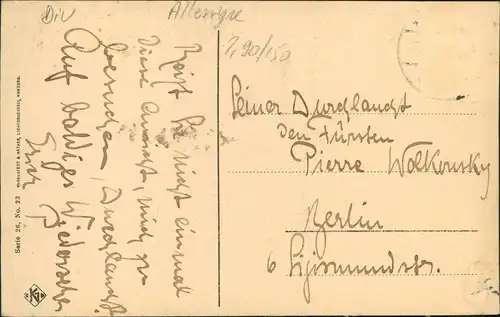 Div
Allerrigse
2,90/150
Reizt Sie nicht einmal
diese Ansicht, mich zu
besuchen, Durchlaucht?
Auf baldiges Wiedersehen
Serie 26, No. 23
Seiner Durchlaucht
den Fürsten
Pierre Wolkonsky
Berlin
6 Sigismundstr.